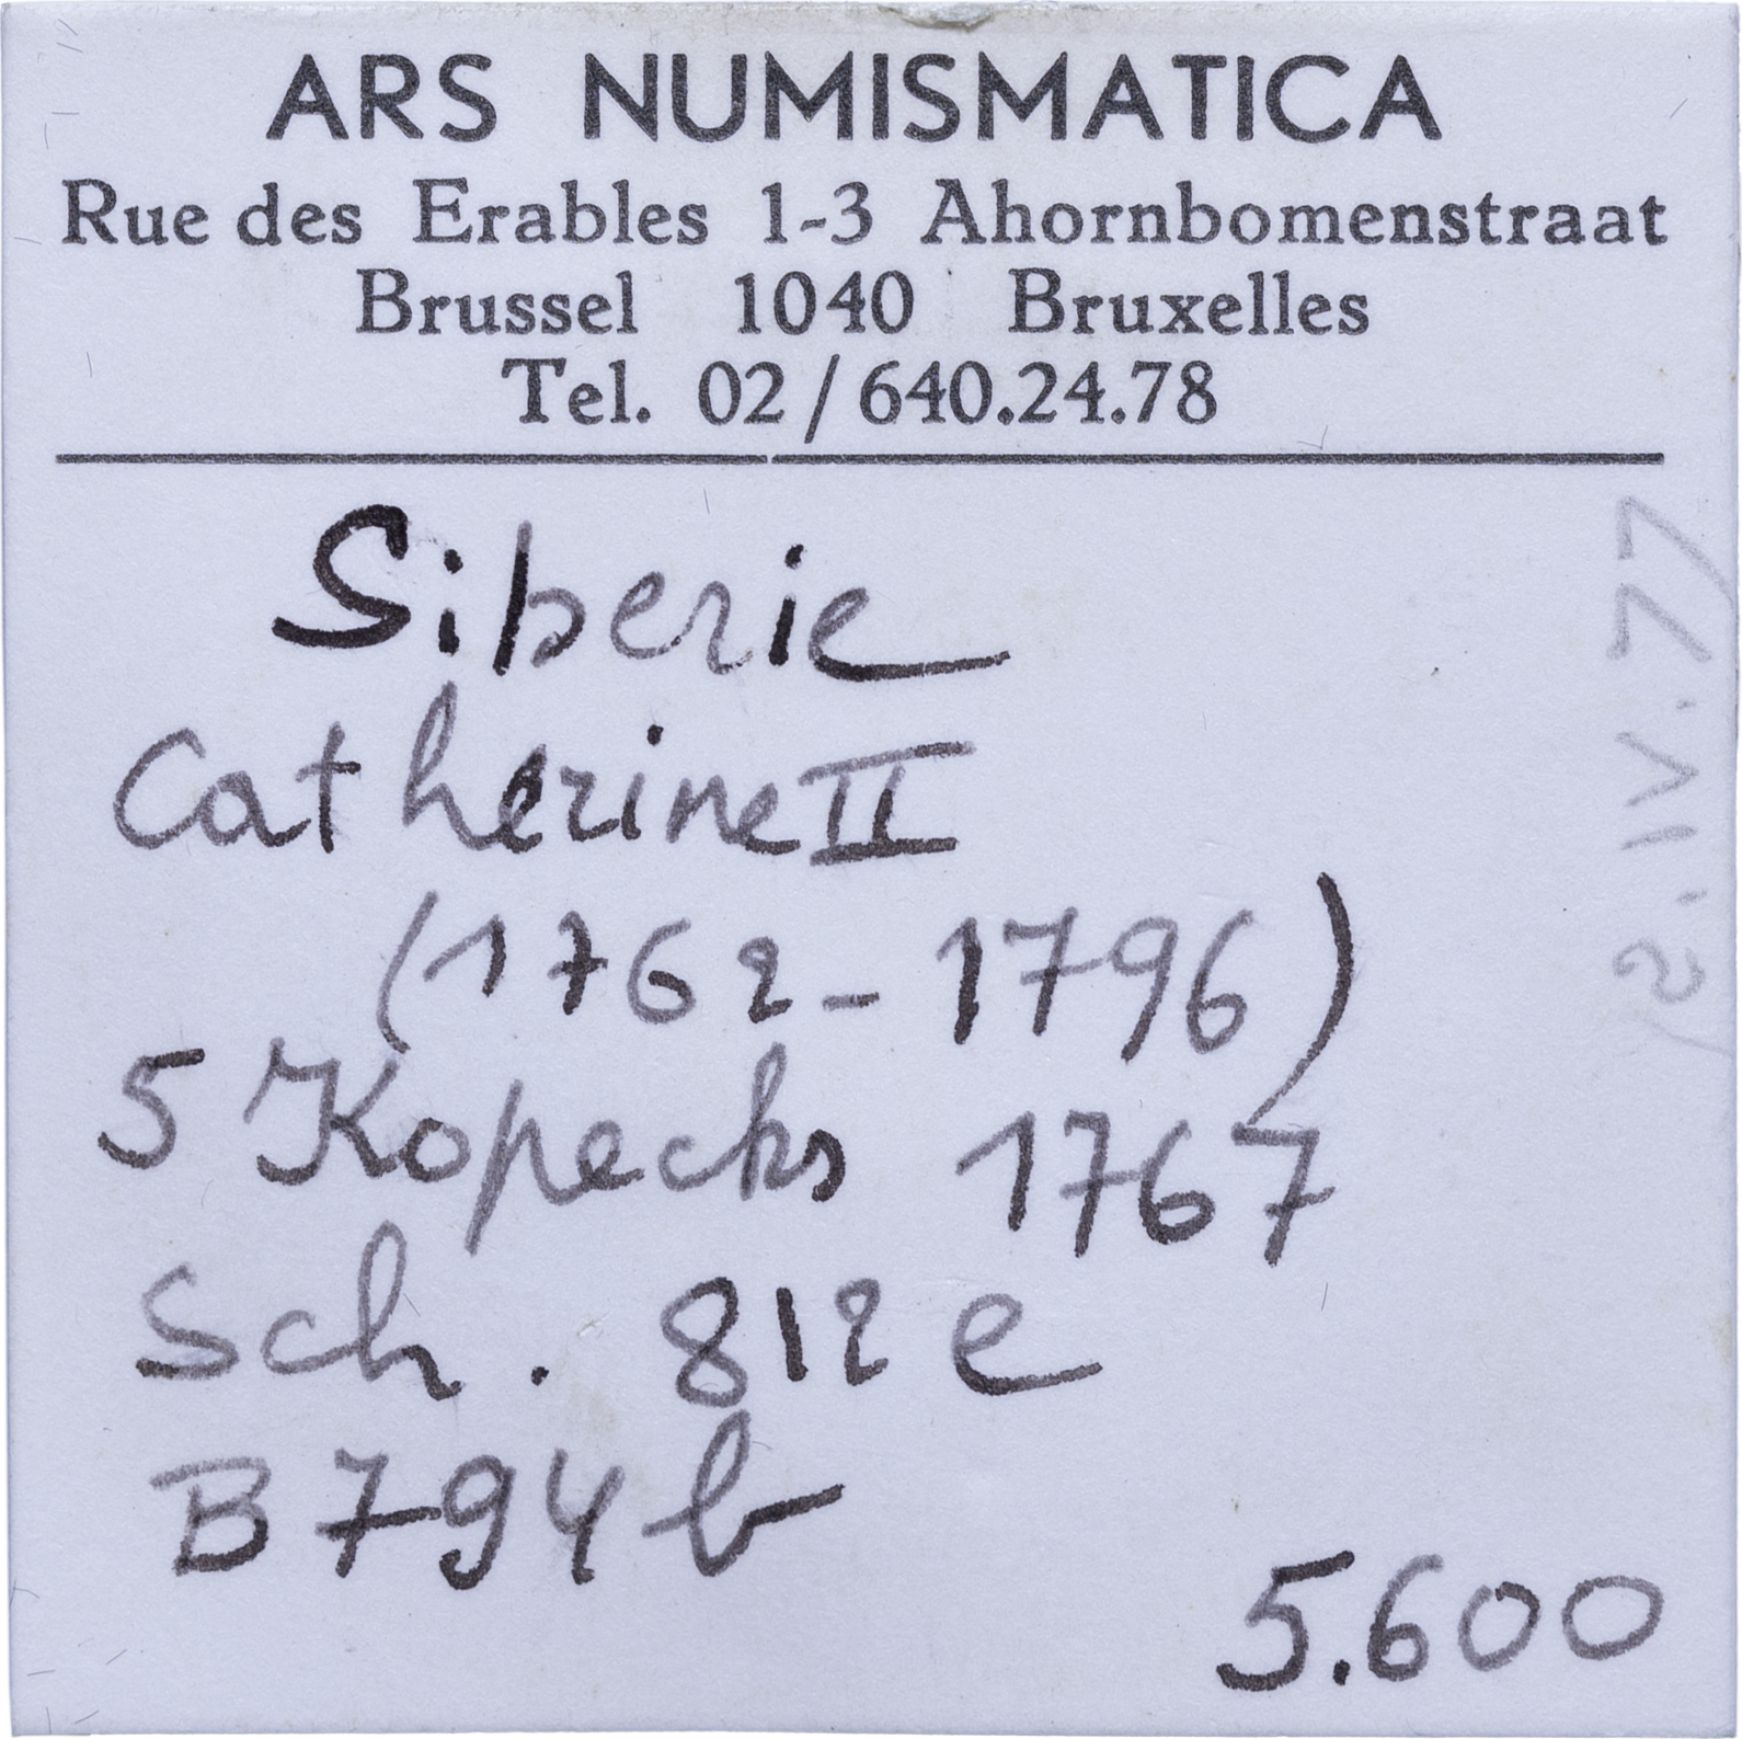 ARS NUMISMATICA
Rue des Erables 1-3 Ahornbomenstraat
Brussel 1040 Bruxelles
Tel. 02/640.24.78
Siberie
Catherine II
(1762-1796)
5 Kopecks 1767
Sch. 812 e
B 794 b
5.600
2.IV.77